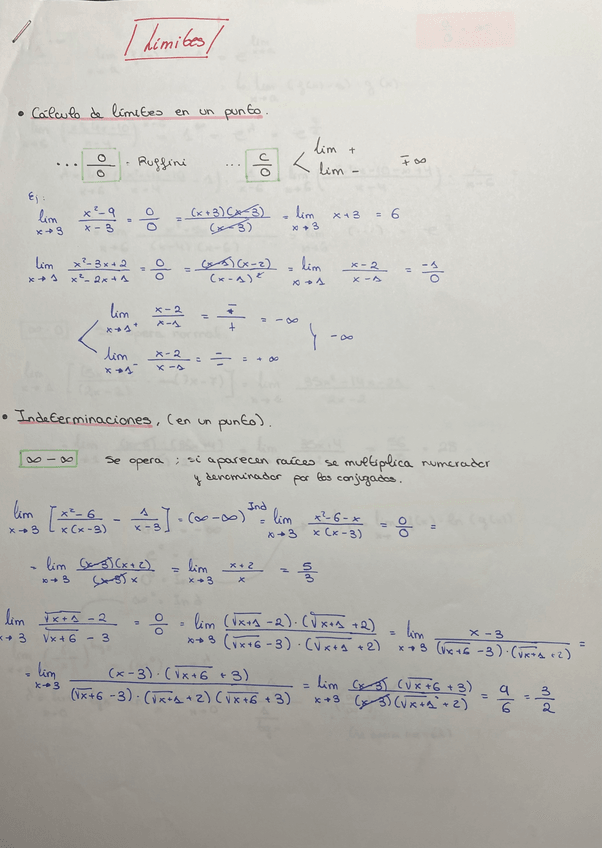 Límites
• Cálculo de límites en un punto.
... 0/0 = Ruffini ... C/0 < lim + lim - ∓∞
Ej:
lim x→3 x²-9/x-3 = 0/0 = (x+3)(x-3)/(x-3) = lim x→3 x+3 = 6
lim x→1 x²-3x+2/x²-2x+1 = 0/0 = (x-1)(x-2)/(x-1)² = lim x→1 x-2/x-1 = -1/0
lim x→1⁺ x-2/x-1 = -/+ = -∞
lim x→1⁻ x-2/x-1 = -/- = +∞ } -∞
• Indeterminaciones, (en un punto).
∞-∞ Se opera ; si aparecen raíces se multiplica numerador
y denominador por los conjugados.
lim x→3 [x²-6/x(x-3) - 1/x-3] = (∞-∞) Ind = lim x→3 x²-6-x/x(x-3) = 0/0 =
= lim x→3 (x-3)(x+2)/(x-3)x = lim x→3 x+2/x = 5/3
lim x→3 √x+1 -2/√x+6 - 3 = 0/0 = lim x→3 (√x+1 -2)·(√x+1 +2)/(√x+6 -3)·(√x+1 +2) = lim x→3 x-3/(√x+6 -3)·(√x+1 +2) =
= lim x→3 (x-3)·(√x+6 +3)/(√x+6 -3)·(√x+1 +2)(√x+6 +3) = lim x→3 (x-3)(√x+6 +3)/(x-3)(√x+1 +2) = 9/6 = 3/2